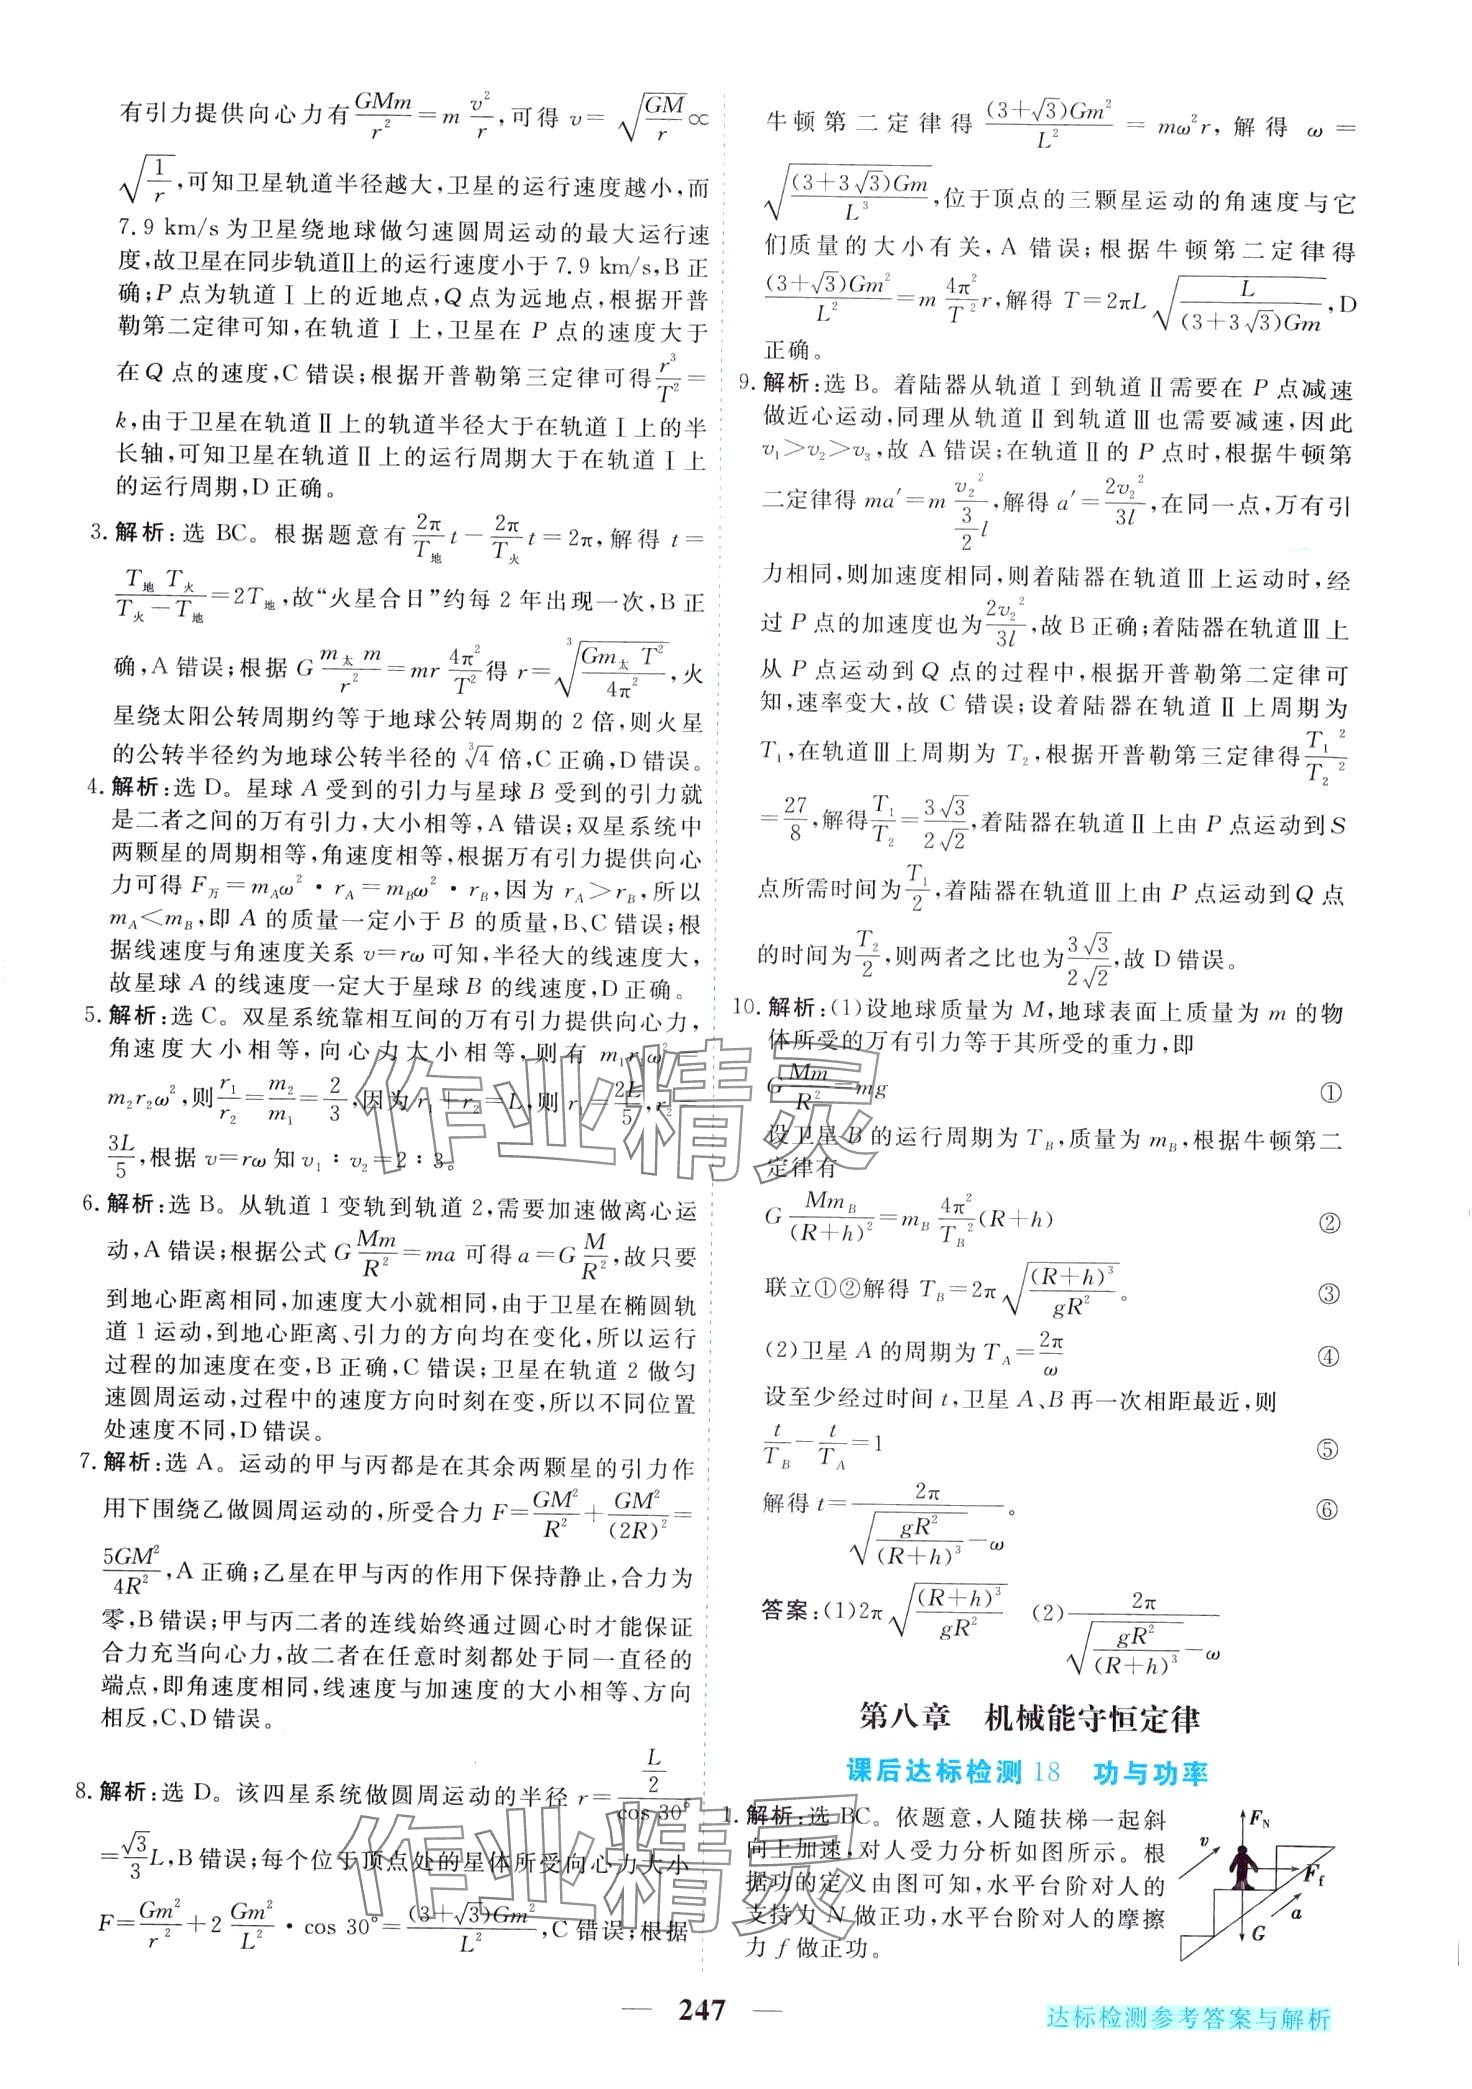 有引力提供向心力有\frac{GMm}{r^2}=m\frac{v^2}{r},可得 v=\sqrt{\frac{GM}{r}}∝
\sqrt{\frac{1}{r}},可知卫星轨道半径越大,卫星的运行速度越小,而
7.9 km/s 为卫星绕地球做匀速圆周运动的最大运行速
度,故卫星在同步轨道Ⅱ上的运行速度小于7.9 km/s,B正
确;P点为轨道Ⅰ上的近地点,Q点为远地点,根据开普
勒第二定律可知,在轨道Ⅰ上,卫星在 P 点的速度大于
在Q点的速度,C错误;根据开普勒第三定律可得\frac{r^3}{T^2}=
k,由于卫星在轨道Ⅱ上的轨道半径大于在轨道Ⅰ上的半
长轴,可知卫星在轨道Ⅱ上的运行周期大于在轨道Ⅰ上
的运行周期,D正确。
3. 解析:选 BC。根据题意有\frac{2π}{T_地}t-\frac{2π}{T_火}t=2π,解得 t=
\frac{T_地 T_火}{T_火-T_地}=2T_地,故“火星合日”约每2年出现一次,B正
确,A错误;根据 G\frac{m_太 m}{r^2}=mr\frac{4π^2}{T^2}得 r=\sqrt[3]{\frac{Gm_太 T^2}{4π^2}},火
星绕太阳公转周期约等于地球公转周期的2倍,则火星
的公转半径约为地球公转半径的\sqrt[3]{4}倍,C正确,D错误。
4. 解析:选 D。星球 A 受到的引力与星球 B 受到的引力就
是二者之间的万有引力,大小相等,A错误;双星系统中
两颗星的周期相等,角速度相等,根据万有引力提供向心
力可得 F_万=m_Aω^2·r_A=m_Bω^2·r_B,因为 r_A>r_B,所以
m_A<m_B,即 A 的质量一定小于 B 的质量,B、C错误;根
据线速度与角速度关系 v=rω可知,半径大的线速度大,
故星球A的线速度一定大于星球B的线速度,D正确。
5. 解析:选 C。双星系统靠相互间的万有引力提供向心力,
角速度大小相等,向心力大小相等,则有 m_1r_1ω^2=
m_2r_2ω^2,则\frac{r_1}{r_2}=\frac{m_2}{m_1}=\frac{2}{3},因为r_1+r_2=L,则 r_1=\frac{2L}{5},r_2=
\frac{3L}{5},根据 v=rω知v_1∶v_2=2∶3。
6. 解析:选B。从轨道1变轨到轨道2,需要加速做离心运
动,A错误;根据公式 G\frac{Mm}{R^2}=ma 可得a=G\frac{M}{R^2},故只要
到地心距离相同,加速度大小就相同,由于卫星在椭圆轨
道1运动,到地心距离、引力的方向均在变化,所以运行
过程的加速度在变,B正确,C错误;卫星在轨道2做匀
速圆周运动,过程中的速度方向时刻在变,所以不同位置
处速度不同,D错误。
7. 解析:选A。运动的甲与丙都是在其余两颗星的引力作
用下围绕乙做圆周运动的,所受合力 F=\frac{GM^2}{R^2}+\frac{GM^2}{(2R)^2}=
\frac{5GM^2}{4R^2},A正确;乙星在甲与丙的作用下保持静止,合力为
零,B错误;甲与丙二者的连线始终通过圆心时才能保证
合力充当向心力,故二者在任意时刻都处于同一直径的
端点,即角速度相同,线速度与加速度的大小相等、方向
相反,C、D错误。
8. 解析:选 D。该四星系统做圆周运动的半径 r=\frac{\frac{L}{2}}{cos 30°}
=\frac{\sqrt{3}}{3}L,B错误;每个位于顶点处的星体所受向心力大小
F=\frac{Gm^2}{r^2}+2\frac{Gm^2}{L^2}·cos 30°=\frac{(3+\sqrt{3})Gm^2}{L^2},C错误;根据
牛顿第二定律得\frac{(3+\sqrt{3})Gm^2}{L^2}=mω^2r,解得 ω=
\sqrt{\frac{(3+3\sqrt{3})Gm}{L^3}},位于顶点的三颗星运动的角速度与它
们质量的大小有关,A错误;根据牛顿第二定律得
\frac{(3+\sqrt{3})Gm^2}{L^2}=m\frac{4π^2}{T^2}r,解得 T=2πL\sqrt{\frac{L}{(3+3\sqrt{3})Gm}},D
正确。
9. 解析:选 B。着陆器从轨道Ⅰ到轨道Ⅱ需要在 P 点减速
做近心运动,同理从轨道Ⅱ到轨道Ⅲ也需要减速,因此
v_1>v_2>v_3,故 A错误;在轨道Ⅱ的 P点时,根据牛顿第
二定律得 ma′=m\frac{v_2^2}{\frac{3}{2}l},解得 a′=\frac{2v_2^2}{3l},在同一点,万有引
力相同,则加速度相同,则着陆器在轨道Ⅲ上运动时,经
过P点的加速度也为\frac{2v_2^2}{3l},故B正确;着陆器在轨道Ⅲ上
从 P点运动到 Q 点的过程中,根据开普勒第二定律可
知,速率变大,故 C 错误;设着陆器在轨道Ⅱ上周期为
T_1,在轨道Ⅲ上周期为 T_2,根据开普勒第三定律得\frac{T_1^2}{T_2^2}
=\frac{27}{8},解得\frac{T_1}{T_2}=\frac{3\sqrt{3}}{2\sqrt{2}},着陆器在轨道Ⅱ上由P点运动到S
点所需时间为\frac{T_1}{2},着陆器在轨道Ⅲ上由 P点运动到Q点
的时间为\frac{T_2}{2},则两者之比也为\frac{3\sqrt{3}}{2\sqrt{2}},故D错误。
10. 解析:(1)设地球质量为 M,地球表面上质量为 m 的物
体所受的万有引力等于其所受的重力,即
G\frac{Mm}{R^2}=mg ①
设卫星 B 的运行周期为 T_B,质量为 m_B,根据牛顿第二
定律有
G\frac{Mm_B}{(R+h)^2}=m_B\frac{4π^2}{T_B^2}(R+h) ②
联立①②解得 T_B=2π\sqrt{\frac{(R+h)^3}{gR^2}}。 ③
(2)卫星 A 的周期为 T_A=\frac{2π}{ω} ④
设至少经过时间 t,卫星A、B再一次相距最近,则
\frac{t}{T_B}-\frac{t}{T_A}=1 ⑤
解得 t=\frac{2π}{\sqrt{\frac{gR^2}{(R+h)^3}}-ω}。 ⑥
答案:(1)2π\sqrt{\frac{(R+h)^3}{gR^2}} (2)\frac{2π}{\sqrt{\frac{gR^2}{(R+h)^3}}-ω}
第八章 机械能守恒定律
课后达标检测18 功与功率
1. 解析:选 BC。依题意,人随扶梯一起斜
向上加速,对人受力分析如图所示。根
据功的定义由图可知,水平台阶对人的
支持力 N做正功,水平台阶对人的摩擦
力 f 做正功。
F_N
v
F_f
a
G
作业精灵
作业精灵
247
达标检测参考答案与解析